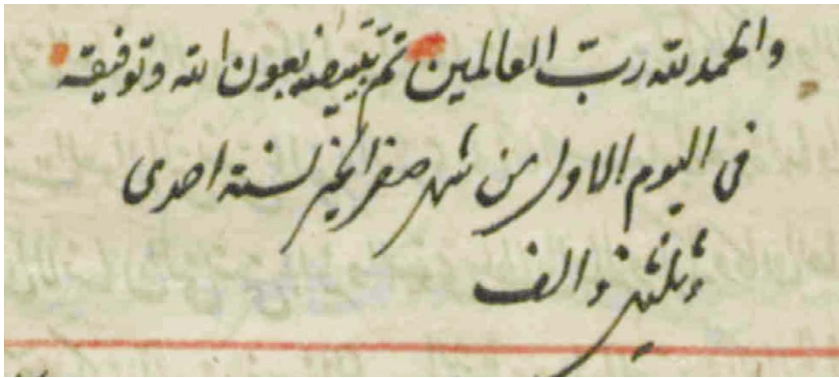 والحمد لله رب العالمين تم تبييضه بعون الله وتوفيقه
فى اليوم الاول من شهر صفر الخير لسنة احدى
وثلثين والف